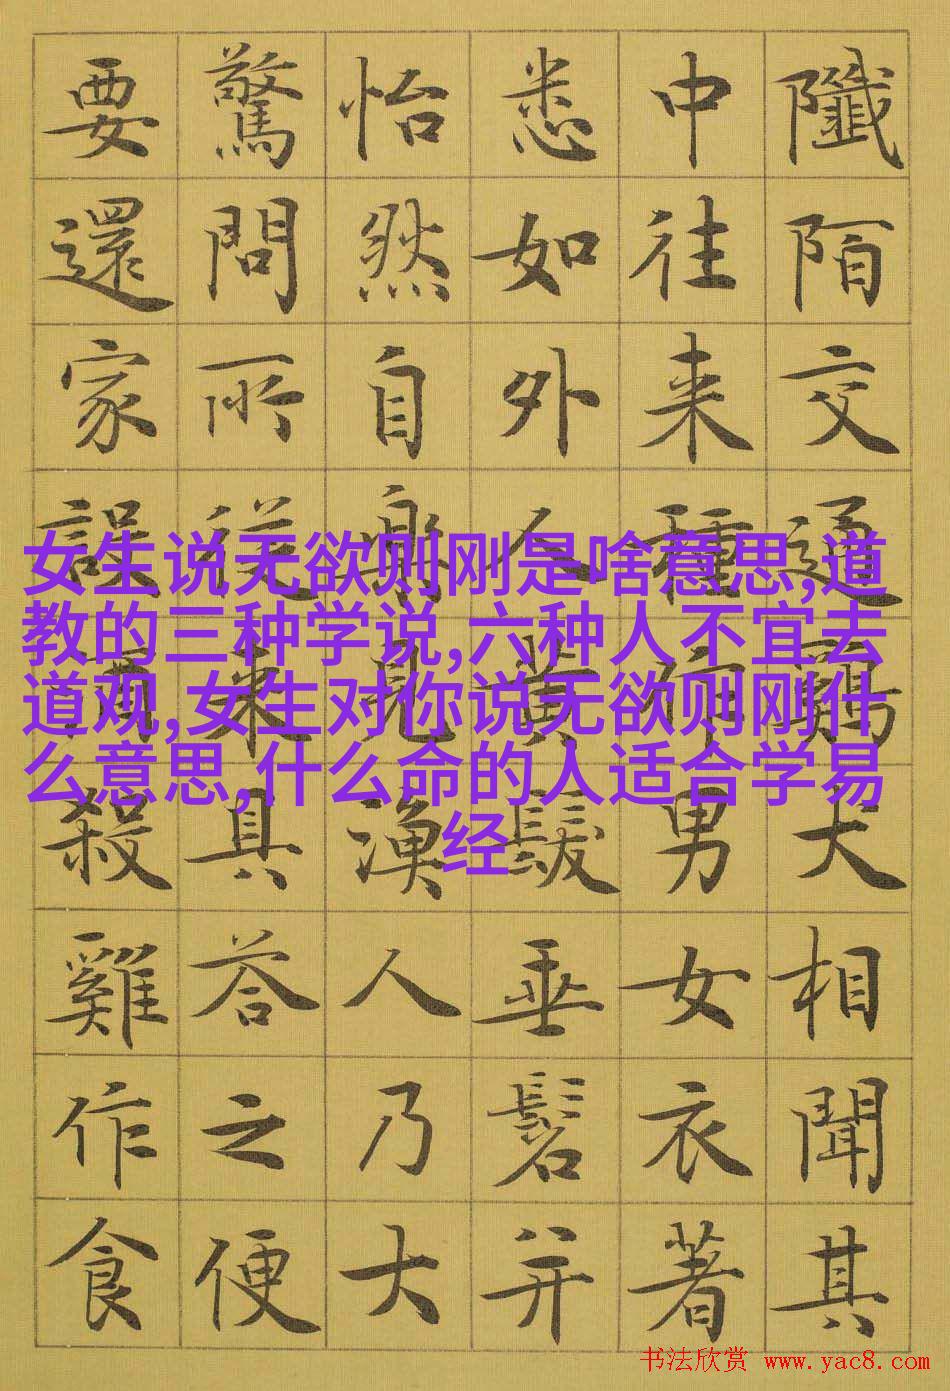 陌交通雞犬相聞其
中往来種作男女衣著
悉如外人黃髮垂髫并
怡然自樂見漁人乃大
驚問所從來具荅之便
要還家設酒殺雞作食
女生说无欲则刚是啥意思,道
教的三种学说,六种人不宜去
道观,女生对你说无欲则刚什
么意思,什么命的人适合学易
经
书法欣赏 www.yac8.com